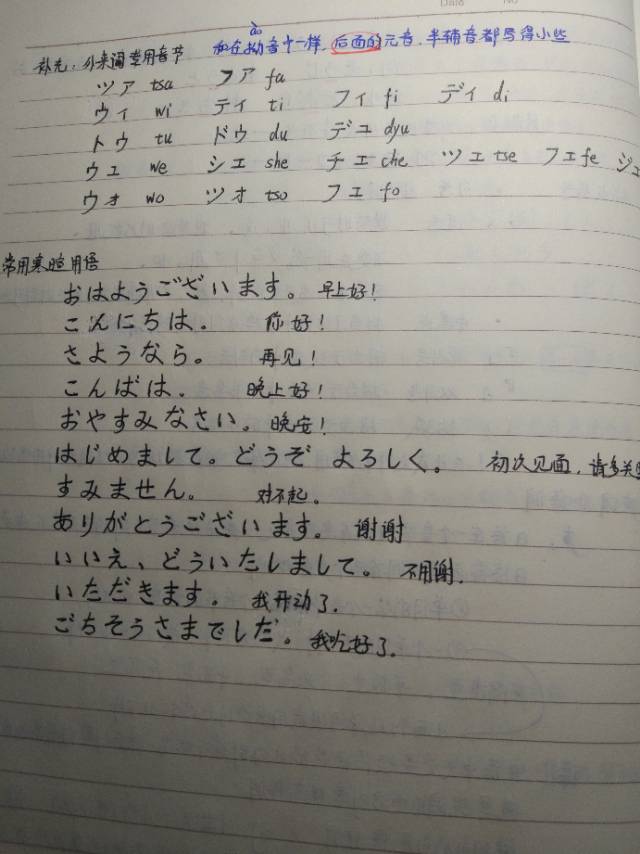 Date No
ǎo
补充：外来词常用音节 和在拗音中一样，后面的元音、半辅音都写得小些
ツァ tsa ファ fa
ウィ wi ティ ti フィ fi ディ di
トゥ tu ドゥ du デュ dyu
ウェ we シェ she チェ che ツェ tse フェ fe ジェ
ウォ wo ツォ tso フェ fo
常用寒暄用语
おはようございます。 早上好！
こんにちは． 你好！
さようなら。 再见！
こんばは． 晚上好！
おやすみなさい。 晚安！
はじめまして。どうぞ よろしく。 初次见面，请多关照
すみません。 对不起。
ありがとうございます． 谢谢
いいえ、どういたしまして。 不用谢．
いただきます． 我开动了．
ごちそうさまでしだ。 我吃好了．